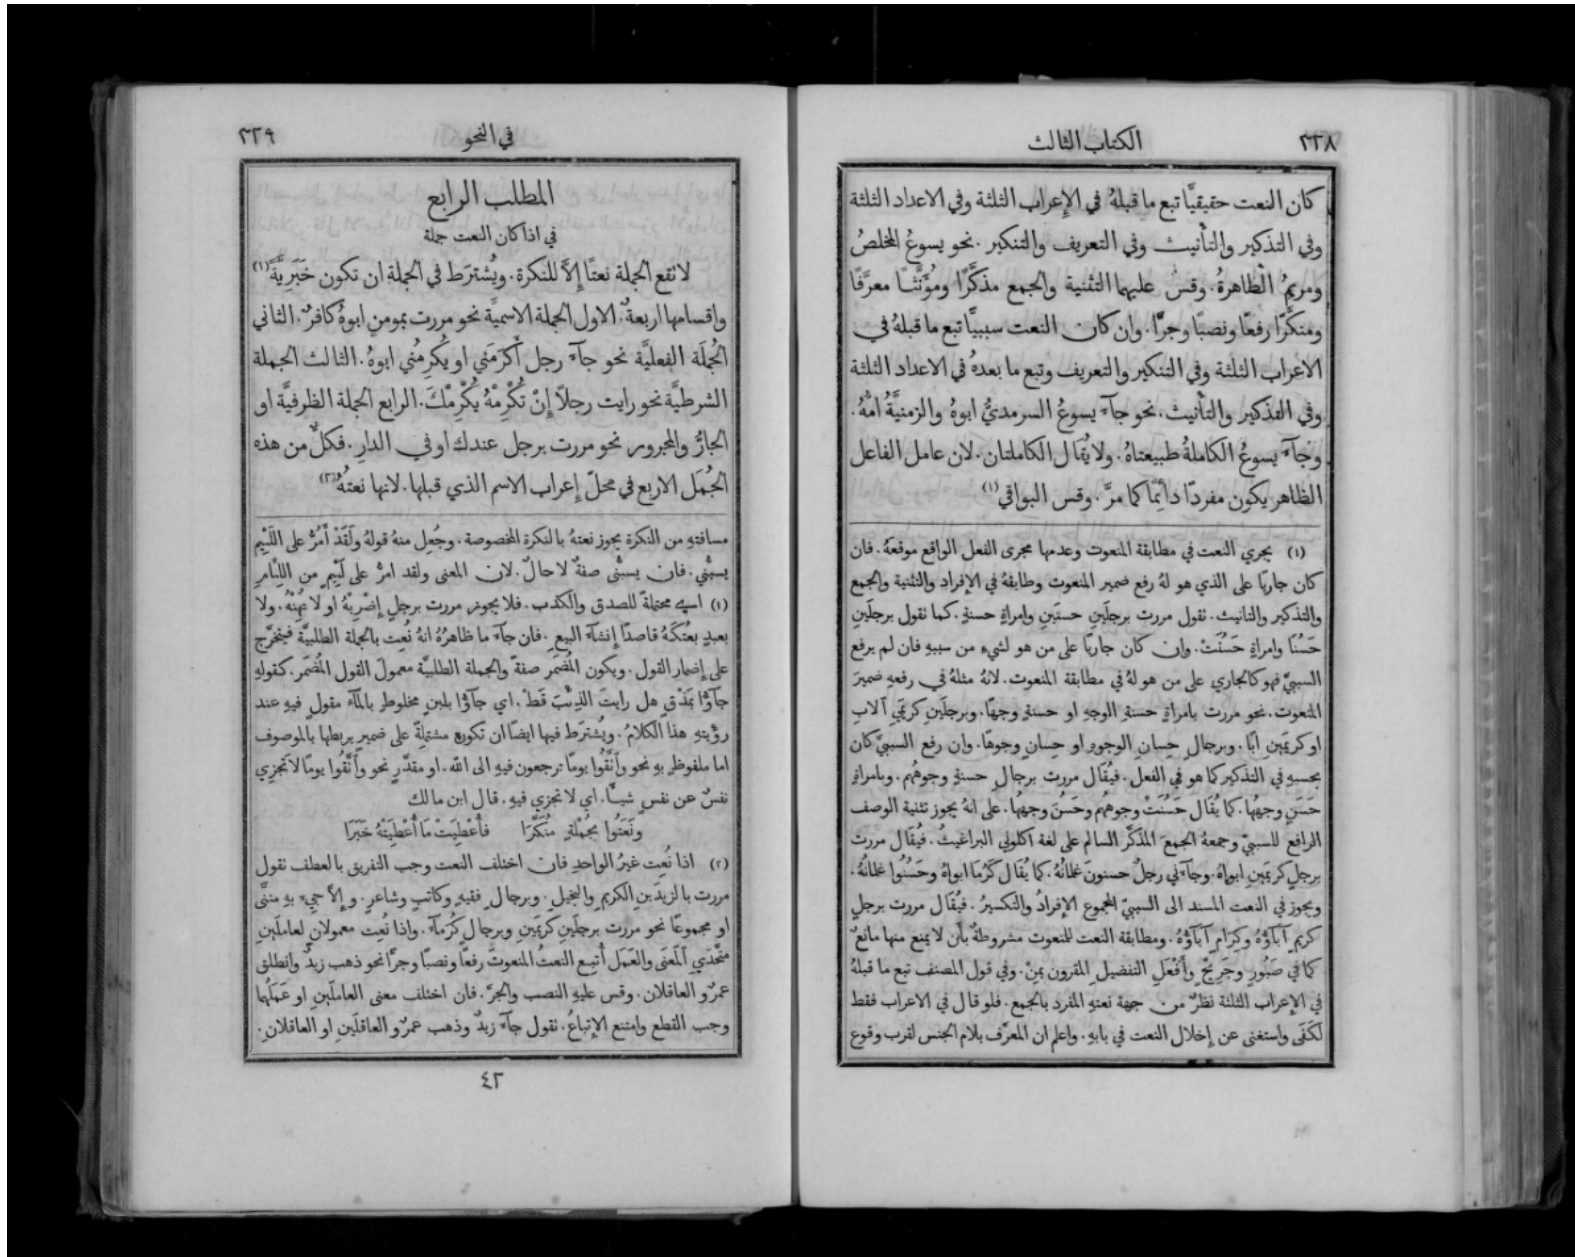 ٣٣٨
الكتاب الثالث
كان النعت حقيقيًّا تبع ما قبلهُ في الإعراب الثلثة وفي الاعداد الثلثة
وفي التذكير والتأنيث وفي التعريف والتنكير. نحو يسوعُ المخلصُ
ومريمُ الطاهرةُ. وقس عليهما التثنية والجمع مذكَّرًا ومُؤَنَّثًا معرَّفًا
ومنكَّرًا رفعًا ونصبًا وجرًّا. وان كان النعت سببيًّا تبع ما قبلهُ في
الاعراب الثلثة وفي التنكير والتعريف وتبع ما بعدهُ في الاعداد الثلثة
وفي التذكير والتأنيث. نحو جآءَ يسوعُ السرمديُّ ابوهُ والزمنيَّةُ امُّهُ.
وجآءَ يسوعُ الكاملةُ طبيعتاهُ. ولا يُقَال الكاملتان. لان عامل الفاعل
الظاهر يكون مفردًا دائمًا كما مرَّ. وقس البواقي (١)
(١) يجري النعت في مطابقة المنعوت وعدمها مجرى الفعل الواقع موقعهُ. فان
كان جاريًا على الذي هو لهُ رفع ضمير المنعوت وطابقهُ في الإفراد والتثنية والجمع
والتذكير والتانيث. نقول مررت برجلَينِ حسنَينِ وامراةٍ حسنةٍ. كما نقول برجلَينِ
حَسُنَا وامراةٍ حَسُنَتْ. وان كان جاريًا على من هو لشيءٍ من سببهِ فان لم يرفع
السببيَّ فهو كالجاري على من هو لهُ في مطابقة المنعوت. لانهُ مثلهُ في رفعهِ ضميرَ
المنعوت. نحو مررت بامراةٍ حسنةِ الوجهِ او حسنةٍ وجهًا. وبرجلَينِ كريمَيِ الابِ
او كريمَينِ ابًا. وبرجالٍ حِسانِ الوجوهِ او حِسانٍ وجوهًا. وان رفع السببيَّ كان
بحسبهِ في التذكير كما هو في الفعل. فيُقَال مررت برجالٍ حسنةٍ وجوهُهُم. وبامراةٍ
حَسَنٍ وجهُها. كما يُقَال حَسُنَتْ وجوهُهُم وحَسُنَ وجهُها. على انهُ يجوز تثنية الوصف
الرافع للسببيّ وجمعهُ الجمعَ المذكَّر السالم على لغة اكلوني البراغيثُ. فيُقَال مررت
برجلٍ كريمَينِ ابواهُ. وجآءَني رجلٌ حسنونَ غلمانُهُ. كما يُقَال كَرُمَا ابواهُ وحَسُنُوا غلمانُهُ.
ويجوز في النعت المسند الى السببيّ المجموع الإفرادُ والتكسيرُ. فيُقَال مررت برجلٍ
كريمٍ آباؤُهُ وكِرَامٍ آباؤُهُ. ومطابقة النعت للمنعوت مشروطةٌ بأن لا يمنع منها مانعٌ
كما في صَبُورٍ وجَرِيحٍ وأَفْعَلِ التفضيل المقرون بمِنْ. وفي قول المصنف تبع ما قبلهُ
في الإعراب الثلثة نظرٌ من جهة نعتهِ المفرد بالجمع. فلو قال في الاعراب فقط
لَكَفَى واستغنى عن إخلال النعت في بابهِ. واعلم ان المعرَّف بلام الجنس لقرب وقوع
في النحو
٣٣٩
المطلب الرابع
في اذا كان النعت جملة
لا تقع الجملة نعتًا إلَّا للنكرة. ويُشترَط في الجملة ان تكون خَبَرِيَّةً (١)
واقسامها اربعةٌ. الاول الجملة الاسميَّة نحو مررت بمومنٍ ابوهُ كافرٌ. الثاني
الجُملَة الفعليَّة نحو جآءَ رجل أَكْرَمَني او يُكْرِمُني ابوهُ. الثالث الجملة
الشرطيَّة نحو رايت رجلًا إِنْ تُكْرِمْهُ يُكْرِمْكَ. الرابع الجملة الظرفيَّة او
الجارُّ والمجرور نحو مررت برجل عندك او في الدارِ. فكلٌّ من هذه
الجُمَل الاربع في محلّ إعراب الاسم الذي قبلها. لانها نعتُهُ (٢)
مسافتهِ من النكرة يجوز نعتهُ بالنكرة المخصوصة. وجُعِل منهُ قولهُ ولَقَدْ أَمُرُّ على اللَئِيمِ
يسبُّني. فان يسبُّنى صفةٌ لا حالٌ. لان المعنى ولقد امرُّ على لَئِيمٍ من اللِئَامِ
(١) اي محتملةً للصدق والكذب. فلا يجوز مررت برجلٍ إِضْرِبْهُ او لا تُهِنْهُ. ولا
بعبدٍ بعْتُكَهُ قاصدًا إنشآءَ البيع. فان جآءَ ما ظاهرُهُ انهُ نُعِت بالجملة الطلبيَّة فيتخرَّج
على إضمار القول. ويكون المُضمَر صفةً والجملة الطلبيَّة معمولَ القول المُضمَر. كقولهِ
جآؤُا بمَذْقٍ هل رايتَ الذِئبَ قَطْ. اي جآؤُا بلبنٍ مخلوطٍ بالمآءِ مقولٍ فيهِ عند
رؤيتهِ هذا الكلامُ. ويُشترَط فيها ايضًا ان تكون مشتملةً على ضميرٍ يربطها بالموصوف
اما ملفوظٍ بهِ نحو وٱتَّقُوا يومًا ترجعون فيهِ الى الله. او مقدَّرٍ نحو وٱتَّقُوا يومًا لا تجزي
نفسٌ عن نفسٍ شيـًٔا. اي لا تجزي فيهِ. قال ابن مالك
ونَعَتُوا بجُمْلَةٍ مُنَكَّرَا فأُعْطِيَتْ مَا أُعْطِيَتْهُ خَبَرَا
(٢) اذا نُعِت غيرُ الواحد فان اختلف النعت وجب التفريق بالعطف نقول
مررت بالزيدَينِ الكريمِ والبخيلِ. وبرجالٍ فقيهٍ وكاتبٍ وشاعرٍ. وإلَّا جيءَ بهِ مثنًّى
او مجموعًا نحو مررت برجلَينِ كريمَينِ وبرجالٍ كُرَمآءَ. واذا نُعِت معمولانِ لعاملَينِ
متَّحدَيِ ٱلمَعنَى والعَمَل أُتبِع النعتُ المنعوتَ رفعًا ونصبًا وجرًّا نحو ذهب زيدٌ وانطلق
عمرٌو العاقلان. وقس عليهِ النصب والجرَّ. فان اختلف معنى العاملَينِ او عَمَلُهُما
وجب القطع وامتنع الإتباعُ. نقول جآءَ زيدٌ وذهب عمرٌو العاقلَينِ او العاقلانِ.
٤٢